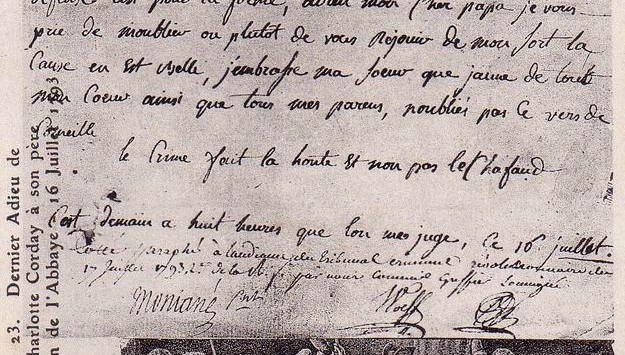 pour la forme, adieu mon Cher papa je vous
prie de moublier ou plutot de vous Rejouir de mon sort la
Cause en Est Belle, jembrasse ma soeur que jaime de tout
mon Coeur ainsi que tous mes parens, noubliés pas le vers de
Corneille
le Crime fait la honte Et non pas lechafaud
Cest demain a huit heures que lon me juge, Ce 16 juillet.
paraphé du tribunal criminel révolutionnaire
17 juillet 1793 de la Commis Greffier
Montané Pnt Wolff
23. Dernier Adieu de
harlotte Corday à son père
n de l'Abbaye - 16 Juillet 1793